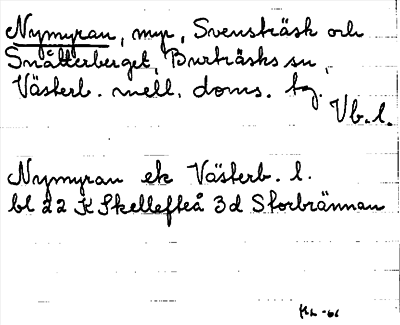 Nymyran, myr, Svensträsk och
Snåtterberget, Burträsks sn,
Västerb. mell. doms. tg.
Vb.l.
Nymyran ek Västerb. l.
bl 22 K Skellefteå 3d Storbrännan
HL -66